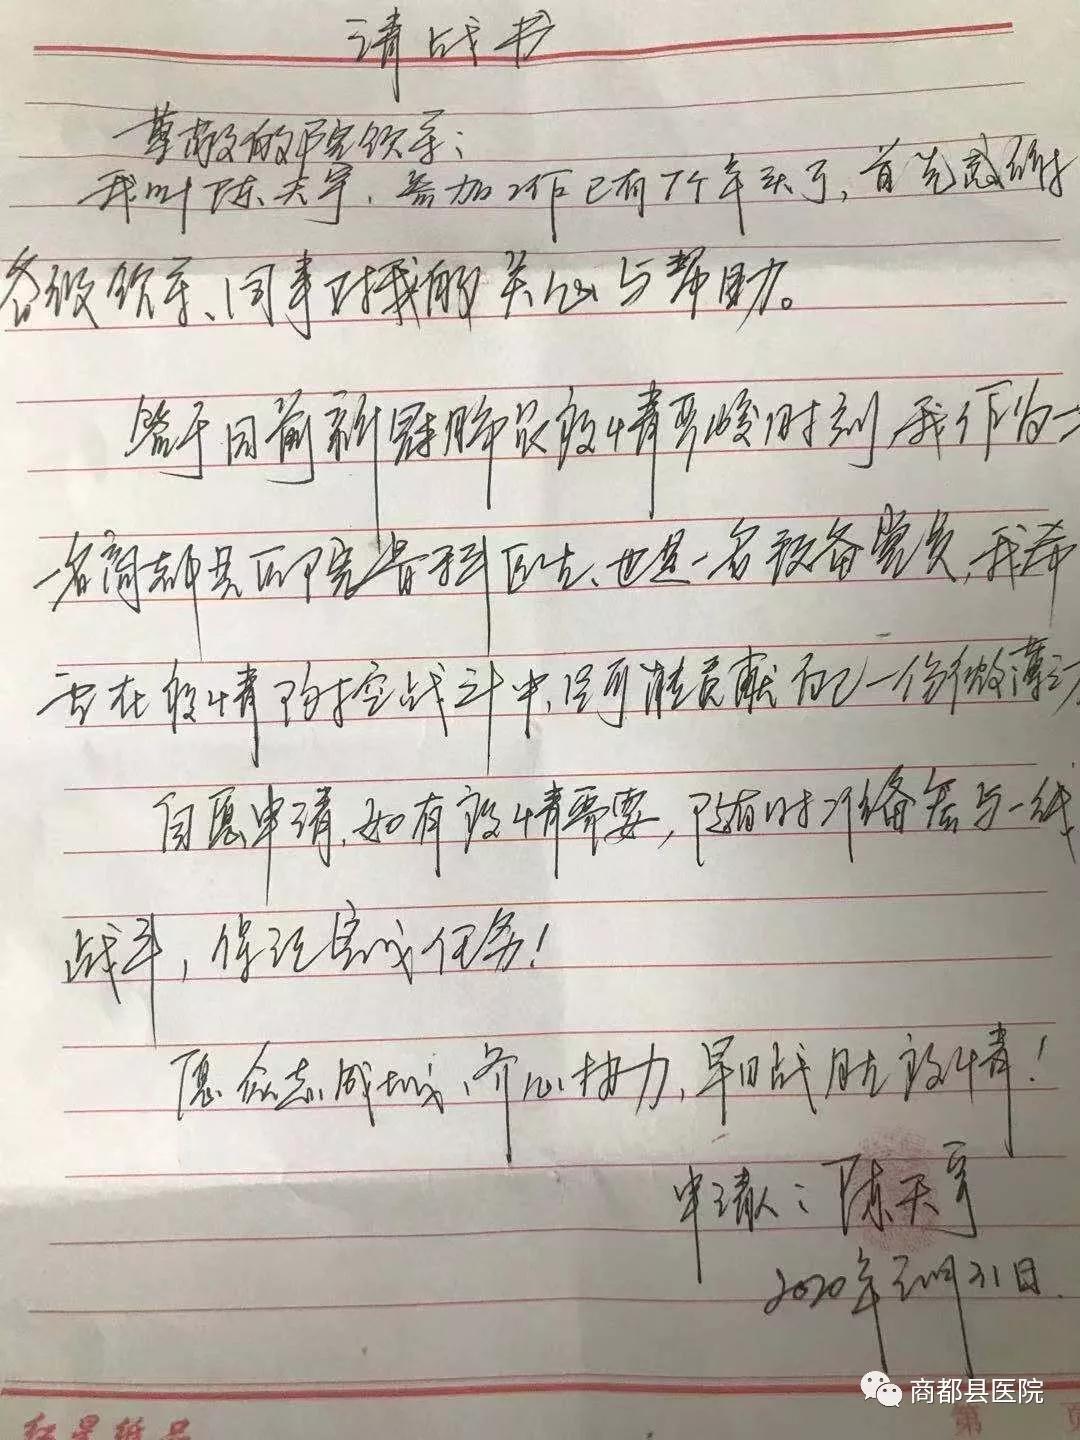 请战书
尊敬的院领导：
我叫陈天宇，参加工作已有7个年头了，首先感谢
各级领导、同事对我的关心与帮助。
鉴于目前新冠肺炎疫情严峻时刻，我作为一
名商都县医院骨科医生、也是一名预备党员，我希
望在疫情防控战斗中，尽可能贡献自己一份微薄之力
自愿申请，如有疫情需要，随时准备参与一线
战斗，保证完成任务！
愿众志成城、齐心协力，早日战胜疫情！
申请人：陈天宇
2020年元月31日.
商都县医院
红星纸品
第 页